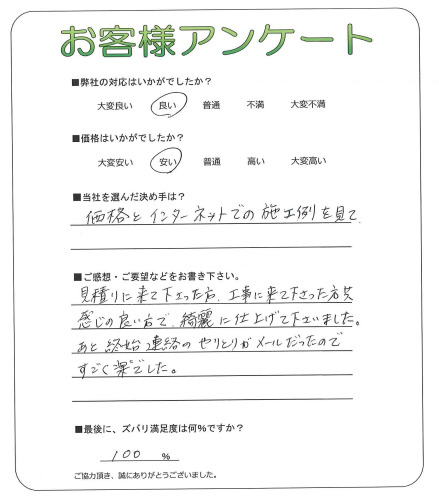 お客様アンケート
■弊社の対応はいかがでしたか？
大変良い 良い 普通 不満 大変不満
■価格はいかがでしたか？
大変安い 安い 普通 高い 大変高い
■当社を選んだ決め手は？
価格とインターネットでの施工例を見て
■ご感想・ご要望などをお書き下さい。
見積りに来て下さった方、工事に来て下さった方共
感じの良い方で、綺麗に仕上げて下さいました。
あと終始連絡のやりとりがメールだったので
すごく楽でした。
■最後に、ズバリ満足度は何%ですか？
100 %
ご協力頂き、誠にありがとうございました。